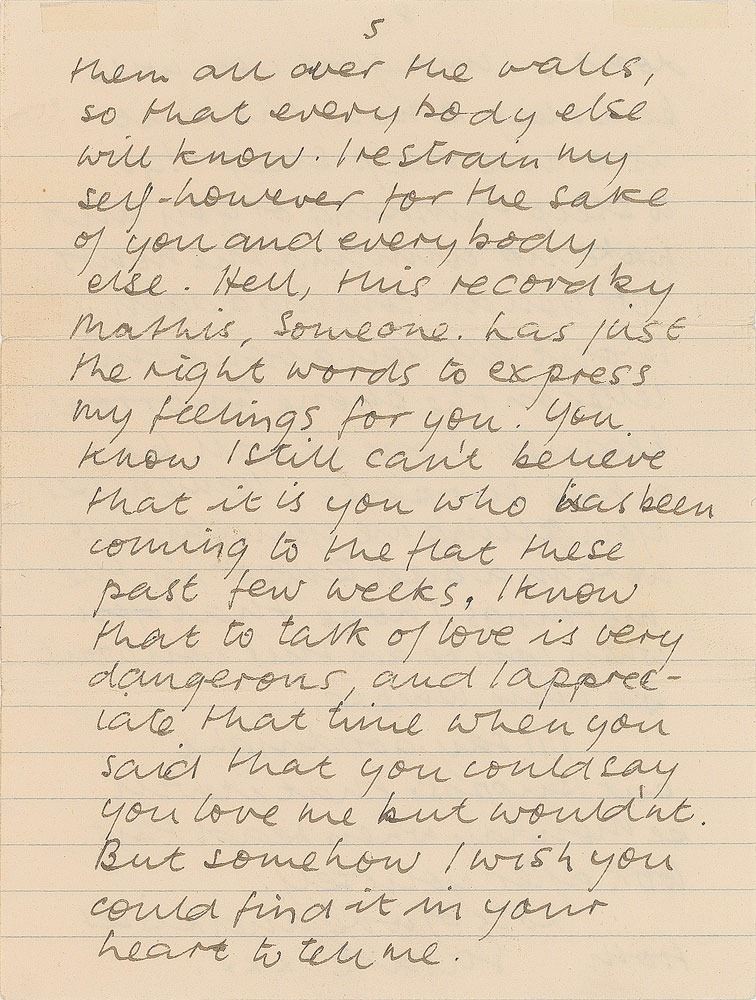 5
them all over the walls,
so that everybody else
will know. I restrain my
self-however for the sake
of you and everybody
else. Hell, this record by
Mathis, Someone. has just
the right words to express
my feelings for you. You
know I still can't believe
that it is you who has been
coming to the flat these
past few weeks. I know
that to talk of love is very
dangerous, and I apprec-
iate that time when you
said that you could say
you love me but would'nt.
But somehow I wish you
could find it in your
heart to tell me.